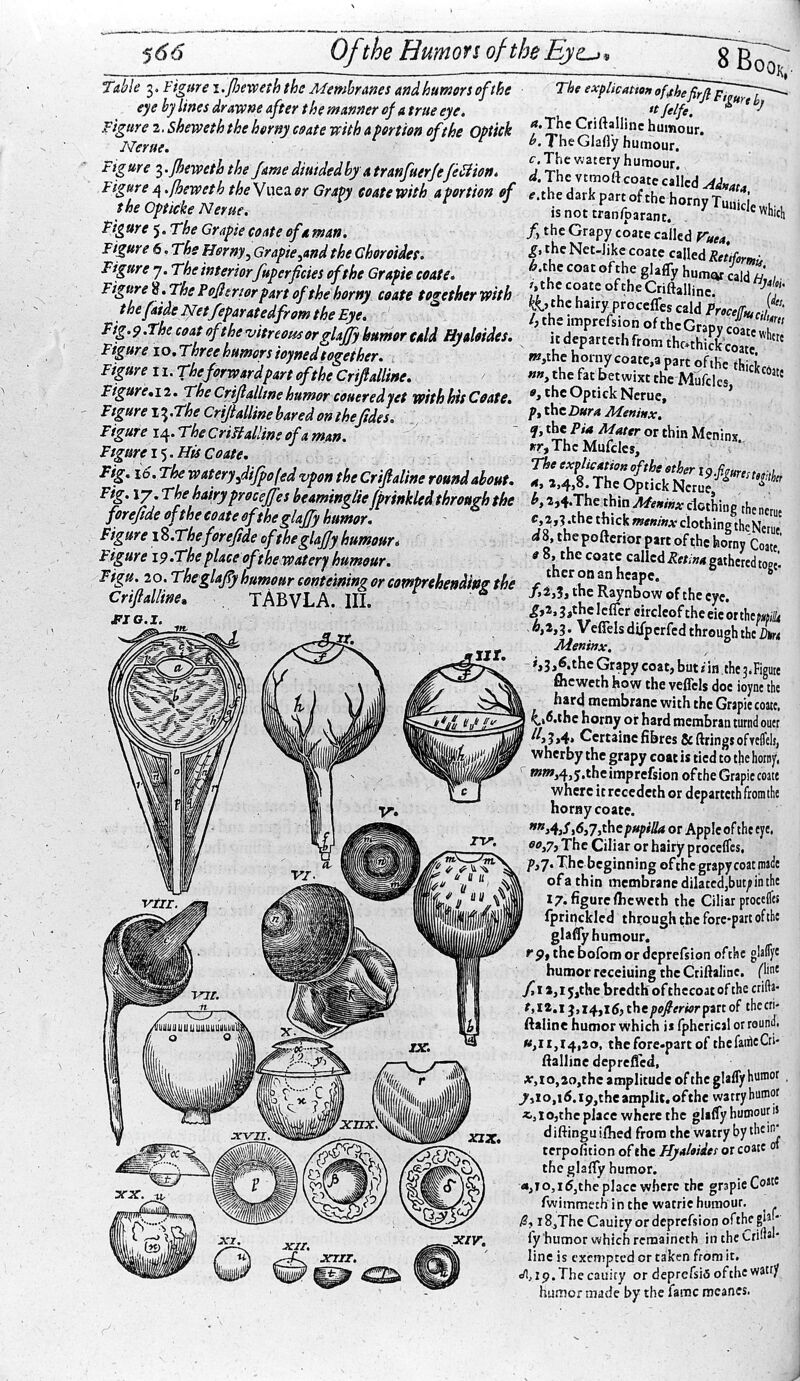 566 Of the Humors of the Eye. 8 Book,
Table 3. Figure 1. ſheweth the Membranes and humors of the
eye by lines drawne after the manner of a true eye.
Figure 2. Sheweth the horny coate with a portion of the Optick
Nerue.
Figure 3. ſheweth the ſame diuided by a tranſuerſe ſection.
Figure 4. ſheweth the Vuea or Grapy coate with a portion of
the Opticke Nerue.
Figure 5. The Grapie coate of a man.
Figure 6. The Horny, Grapie, and the Choroides.
Figure 7. The interior ſuperficies of the Grapie coate.
Figure 8. The Poſterior part of the horny coate together with
the ſaide Net ſeparated from the Eye.
Fig. 9. The coat of the vitreous or glaſſy humor cald Hyaloides.
Figure 10. Three humors ioyned together.
Figure 11. The forward part of the Criſtalline.
Figure. 12. The Criſtalline humor couered yet with his Coate.
Figure 13. The Criſtalline bared on the ſides.
Figure 14. The Criſtalline of a man.
Figure 15. His Coate.
Fig. 16. The watery, diſpoſed vpon the Criſtaline round about.
Fig. 17. The hairy proceſſes beaminglie ſprinkled through the
foreſide of the coate of the glaſſy humor.
Figure 18. The foreſide of the glaſſy humour.
Figure 19. The place of the watery humour.
Figu. 20. The glaſſy humour conteining or comprehending the
Criſtalline. TABVLA. III.
The explication of the firſt Figure by
it ſelfe.
a. The Criſtalline humour.
b. The Glaſſy humour.
c. The watery humour.
d. The vtmoſt coate called Adnata.
e. the dark part of the horny Tunicle which
is not tranſparant.
f, the Grapy coate called Vuea.
g, the Net-like coate called Retiformis.
h. the coat of the glaſſy humor cald Hyaloi-
i, the coate of the Criſtalline. (des.
kk, the hairy proceſſes cald Proceſſus ciliares
l, the impreſsion of the Grapy coate where
it departeth from the thick coate.
m, the horny coate, a part of the thick coate
nn, the fat betwixt the Muſcles,
o, the Optick Nerue,
p, the Dura Meninx.
q, the Pia Mater or thin Meninx.
rr, The Muſcles,
The explication of the other 19. figures together
a, 2,4,8. The Optick Nerue,
b, 2,4. The thin Meninx clothing the nerue
c, 2,3. the thick meninx clothing the Nerue,
d 8, the poſterior part of the horny Coate,
e 8, the coate called Retina gathered toge-
ther on an heape.
f, 2,3, the Raynbow of the eye.
g, 2,3, the leſſer circle of the eie or the pupilla
h, 2,3. Veſſels diſperſed through the Dura
Meninx.
i, 3,6. the Grapy coat, but i in the 3. Figure
ſheweth how the veſſels doe ioyne the
hard membrane with the Grapie coate.
k, 6. the horny or hard membran turnd ouer
ll, 3,4. Certaine fibres & ſtrings of veſſels,
wherby the grapy coat is tied to the horny.
mm, 4,5. the impreſsion of the Grapie coate
where it recedeth or departeth from the
horny coate.
nn, 4,5,6,7, the pupilla or Apple of the eye.
oo, 7, The Ciliar or hairy proceſſes.
p, 7. The beginning of the grapy coat made
of a thin membrane dilated, but p in the
17. figure ſheweth the Ciliar proceſſes
ſprinckled through the fore-part of the
glaſſy humour.
r 9, the boſom or depreſsion of the glaſſye
humor receiuing the Criſtaline. (line
ſ, 12, 15, the bredth of the coat of the criſta-
t, 12. 13, 14, 16, the poſterior part of the cri-
ſtaline humor which is ſpherical or round.
u, 11, 14, 20, the fore-part of the ſame Cri-
ſtalline depreſſed.
x, 10, 20, the amplitude of the glaſſy humor
y, 10, 16. 19, the amplit. of the watry humor
z, 10, the place where the glaſſy humour is
diſtinguiſhed from the watry by the in-
terpoſition of the Hyaloides or coate of
the glaſſy humor.
α, 10, 16, the place where the grapie Coate
ſwimmeth in the watrie humour.
β, 18, The Cauity or depreſsion of the glaſ-
ſy humor which remaineth in the Criſtal-
line is exempted or taken from it.
δ, 19. The cauity or depreſsiō of the watry
humor made by the ſame meanes.
FIG. I.
II.
III.
V.
IV.
VI.
VIII.
VII.
X.
IX.
XIIX.
XVII.
XIX.
XX.
XI.
XII.
XIII.
XIV.